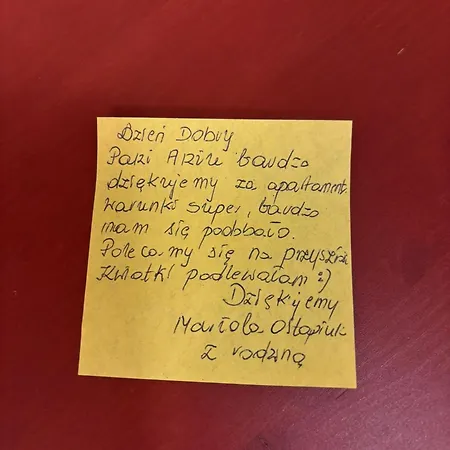 Dzień Dobry
Pani Aniu bardzo
dziękujemy za apartament.
warunki super, bardzo
nam się podobało.
Polecamy się na przyszłość
Kwiatki podlewałam :)
Dziękujemy
Mariola Ostapiuk
z rodziną